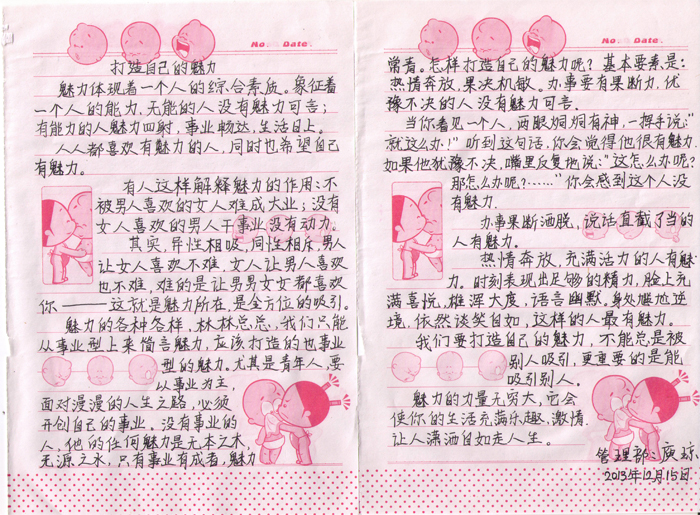 No. Date.
打造自己的魅力
魅力体现着一个人的综合素质。象征着
一个人的能力,无能的人没有魅力可言;
有能力的人魅力四射,事业畅达,生活日上。
人人都喜欢有魅力的人,同时也希望自己
有魅力。
有人这样解释魅力的作用:不
被男人喜欢的女人难成大业;没有
女人喜欢的男人干事业没有动力。
其实,异性相吸,同性相斥,男人
让女人喜欢不难,女人让男人喜欢
也不难,难的是让男男女女都喜欢
你——这就是魅力所在,是全方位的吸引。
魅力的各种各样,林林总总,我们只能
从事业型上来简言魅力,应该打造的也事业
型的魅力。尤其是青年人,要
以事业为主,
面对漫漫的人生之路,必须
开创自己的事业。没有事业的
人,他的任何魅力是无本之木,
无源之水,只有事业有成者,魅力
No. Date.
常青。怎样打造自己的魅力呢?基本要素是:
热情奔放,果决机敏。办事要有果断力,优
豫不决的人没有魅力可言。
当你看见一个人,两眼炯炯有神,一挥手说:“
就这么办!”听到这句话,你会觉得他很有魅力.
如果他犹豫不决,嘴里反复地说:“这怎么办呢?
那怎么办呢?……”你会感到这个人没
有魅力.
办事果断洒脱,说话直截了当的
人有魅力。
热情奔放,充满活力的人有魅
力。时刻表现出足够的精力,脸上充
满喜悦,雄浑大度,语言幽默,身处尴尬逆
境,依然谈笑自如,这样的人最有魅力。
我们要打造自己的魅力,不能总是被
别人吸引,更重要的是能
吸引别人。
魅力的力量无穷大,它会
使你的生活充满乐趣,激情.
让人潇洒自如走人生。
管理部:庾琼
2013年12月15日